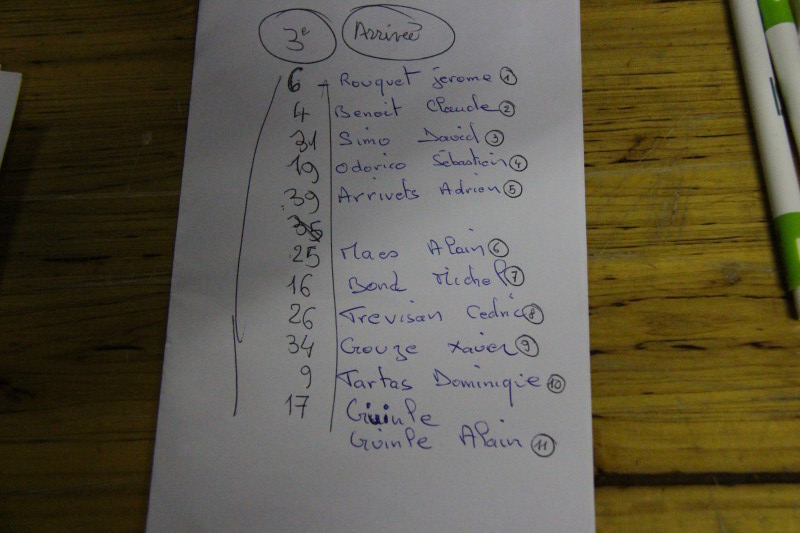 3e Arrivée
6 - Rouquet jerome 1
4 Benoit Claude 2
31 Simo David 3
19 Odorico Sébastien 4
39 Arrivets Adrien 5
35
25 Maes Alain 6
16 Bond Michel 7
26 Trevisan Cedric 8
34 Gouze Xavier 9
9 Tartas Dominique 10
17 Guinle
Guinle Alain 11